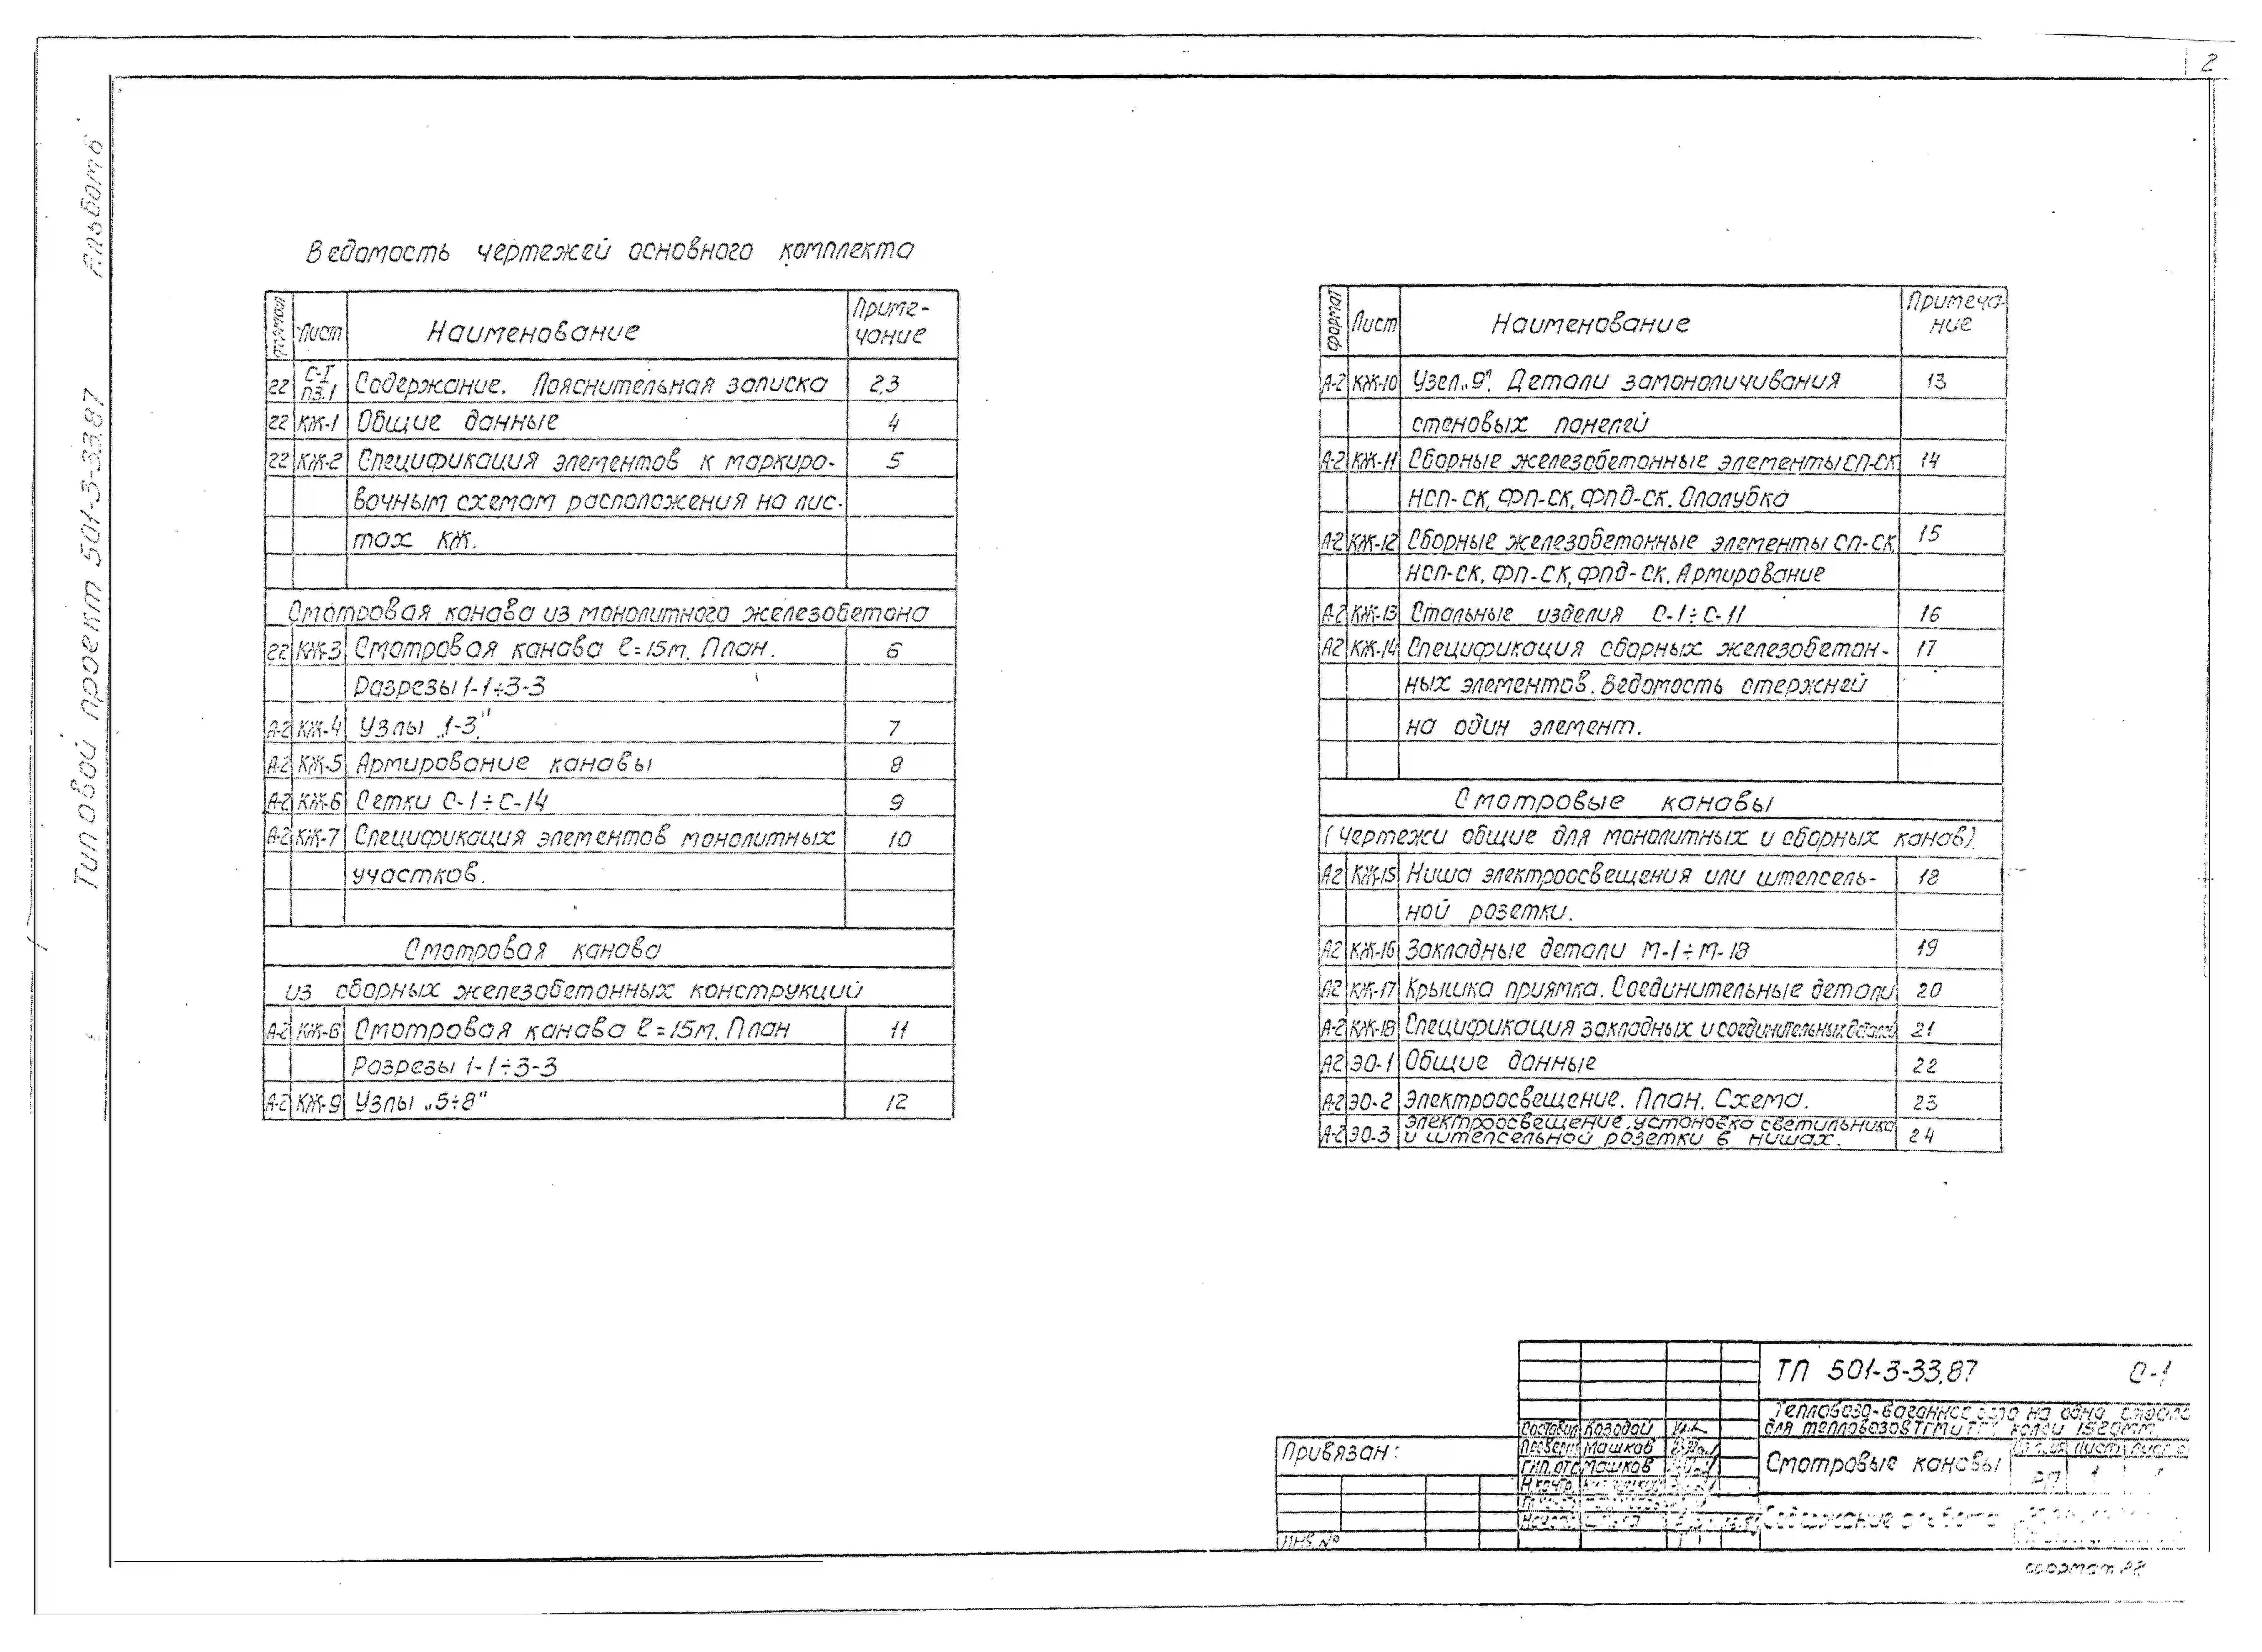 2
Типовой проект 501-3-33.87 Альбом 6
Ведомость чертежей основного комплекта
Формат Лист Наименование Приме-
чание
22 С-1
ПЗ.1 Содержание. Пояснительная записка 2,3
22 КЖ-1 Общие данные 4
22 КЖ-2 Спецификация элементов к маркиро- 5
вочным схемам расположения на лис-
тах КЖ.
Смотровая канава из монолитного железобетона
22 КЖ-3 Смотровая канава ℓ=15м. План. 6
Разрезы 1-1÷3-3
А-2 КЖ-4 Узлы „1-3" 7
А-2 КЖ-5 Армирование канавы 8
А-2 КЖ-6 Сетки С-1÷С-14 9
А-2 КЖ-7 Спецификация элементов монолитных 10
участков.
Смотровая канава
из сборных железобетонных конструкций
А-2 КЖ-8 Смотровая канава ℓ=15м. План 11
Разрезы 1-1÷3-3
А-2 КЖ-9 Узлы „5÷8" 12
Формат Лист Наименование Примеча-
ние
А-2 КЖ-10 Узел „9". Детали замоноличивания 13
стеновых панелей
А-2 КЖ-11 Сборные железобетонные элементы СП-СК 14
НСП-СК, ФП-СК, ФПД-СК. Опалубка
А-2 КЖ-12 Сборные железобетонные элементы СП-СК, 15
НСП-СК, ФП-СК, ФПД-СК. Армирование
А-2 КЖ-13 Стальные изделия С-1÷С-11 16
А2 КЖ-14 Спецификация сборных железобетон- 17
ных элементов. Ведомость стержней
на один элемент.
Смотровые канавы
(Чертежи общие для монолитных и сборных канав).
А2 КЖ-15 Ниша электроосвещения или штепсель- 18
ной розетки.
А2 КЖ-16 Закладные детали М-1÷М-18 19
А2 КЖ-17 Крышка приямка. Соединительные детали 20
А-2 КЖ-18 Спецификация закладных и соединительных деталей 21
А2 ЭО-1 Общие данные 22
А-2 ЭО-2 Электроосвещение. План. Схема. 23
А-2 ЭО-3 Электроосвещение, установка светильника
и штепсельной розетки в нишах. 24
ТП 501-3-33.87 С-1
Тепловозо-вагонное депо на одно стойло
для тепловозов ТГМ и колеи 1520мм.
Составил Козодой
Проверил Машков
Гип. отд Машков
Н.контр.
Привязан:
Инв №
Смотровые канавы
Лист
РП 1
Содержание альбома
Формат А2